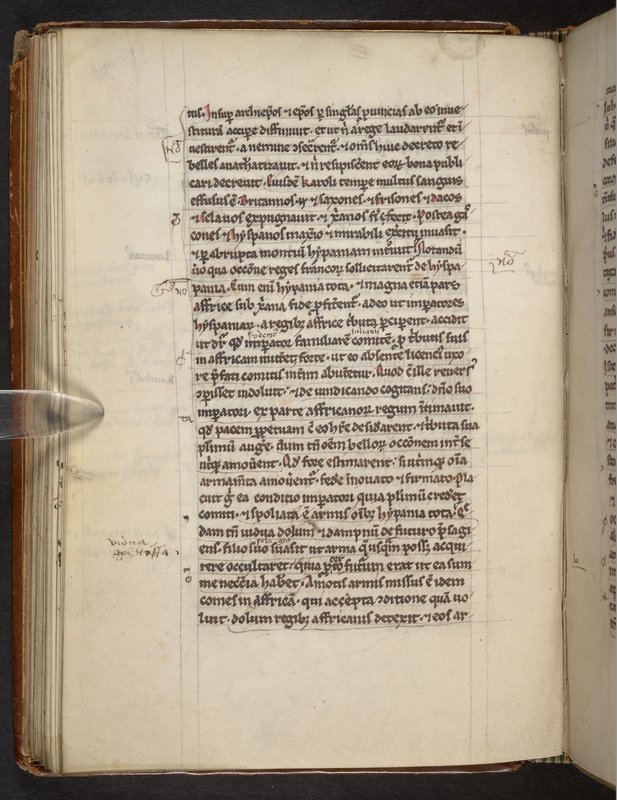 tus. Insup̄ archiep̄os ⁊ ep̄os p̄ singłas puincias ab eo inue
stiturā accipe diffiniuit. et ut n̄ a rege laudar̄ntˀ et i
uestirent̄. a nemine ɔsecrent̄. ⁊ om̄s huic decreto re
belles anathatizauit. ⁊ n̄ resipiscent eoꝝ bona publi
cari decreuit. Eiusdē Karoli tempe multus sanguis
effusus ē Britannos ⁊ Saxones. ⁊ frisones ⁊ dacos
⁊ sclauos expugnauit. ⁊ xp̄ianos fi͛i effecit. Postea
cones ⁊ hyspanos ⁊ mirabili exercitu inuasit.
⁊ p̄ abrupta montiū hyspaniam int͛uit. Notandū
u͛o qua occōne reges francoꝝ sollicitarent̄ de hyspa
pania. Cum eni hyspania tota. ⁊ magna etiā pars
affrice sub xp̄iana fide p̄fit͛ent̄. adeo ut impatores
hyspaniaꝝ. a regibꝫ affrice t͛buta p̄cipent. accidit
ut dr̄. qd̄ impator familiarē comitē. p̄ t͛butis suis
in affricam mitt͛et. forte. ut eo absente licenciꝰ uxo
re p̄fati comitis int͛im abut͛etur. Quod cū ille reuers̄
ɔpisset indoluit. ⁊ de uindicando cogitans. dn̄o suo
impatori. ex parte affricanoꝝ regum int̄imauit.
qd̄ pacem p̄petuam cū eo h͛re desidarent. ⁊ t͛buta sua
plīmū auge. dum tn̄ oēm belloꝝ occōnem int͛ se
ut͛qꝫ amou͛ent. Qd̄ fore estimarent. si ut͛inqꝫ oīa
armam̄ta amou͛ent̄. fede inouato ⁊ firmato. Pla
cuit g͛ ea conditio impatori quia plīmū cred͛et
comiti. ⁊ spoliata ē armis oībꝫ hyspania tota. Qe͛
dam tn̄ uidua dolum ⁊ dampnū de futuro p̄sagi
ens. filio suo suasit ut arma q͛usqm̄ possꝫ acqui
rere occultaret. quia futurum erat ut ea sum
me nec̄cia hab͛et. Amotis armis missus ē idem
comes in affricā. qui accepta ɔditione quā uo
luit. dolum regibꝫ affricanis detexit. ⁊ eos ar
uidua